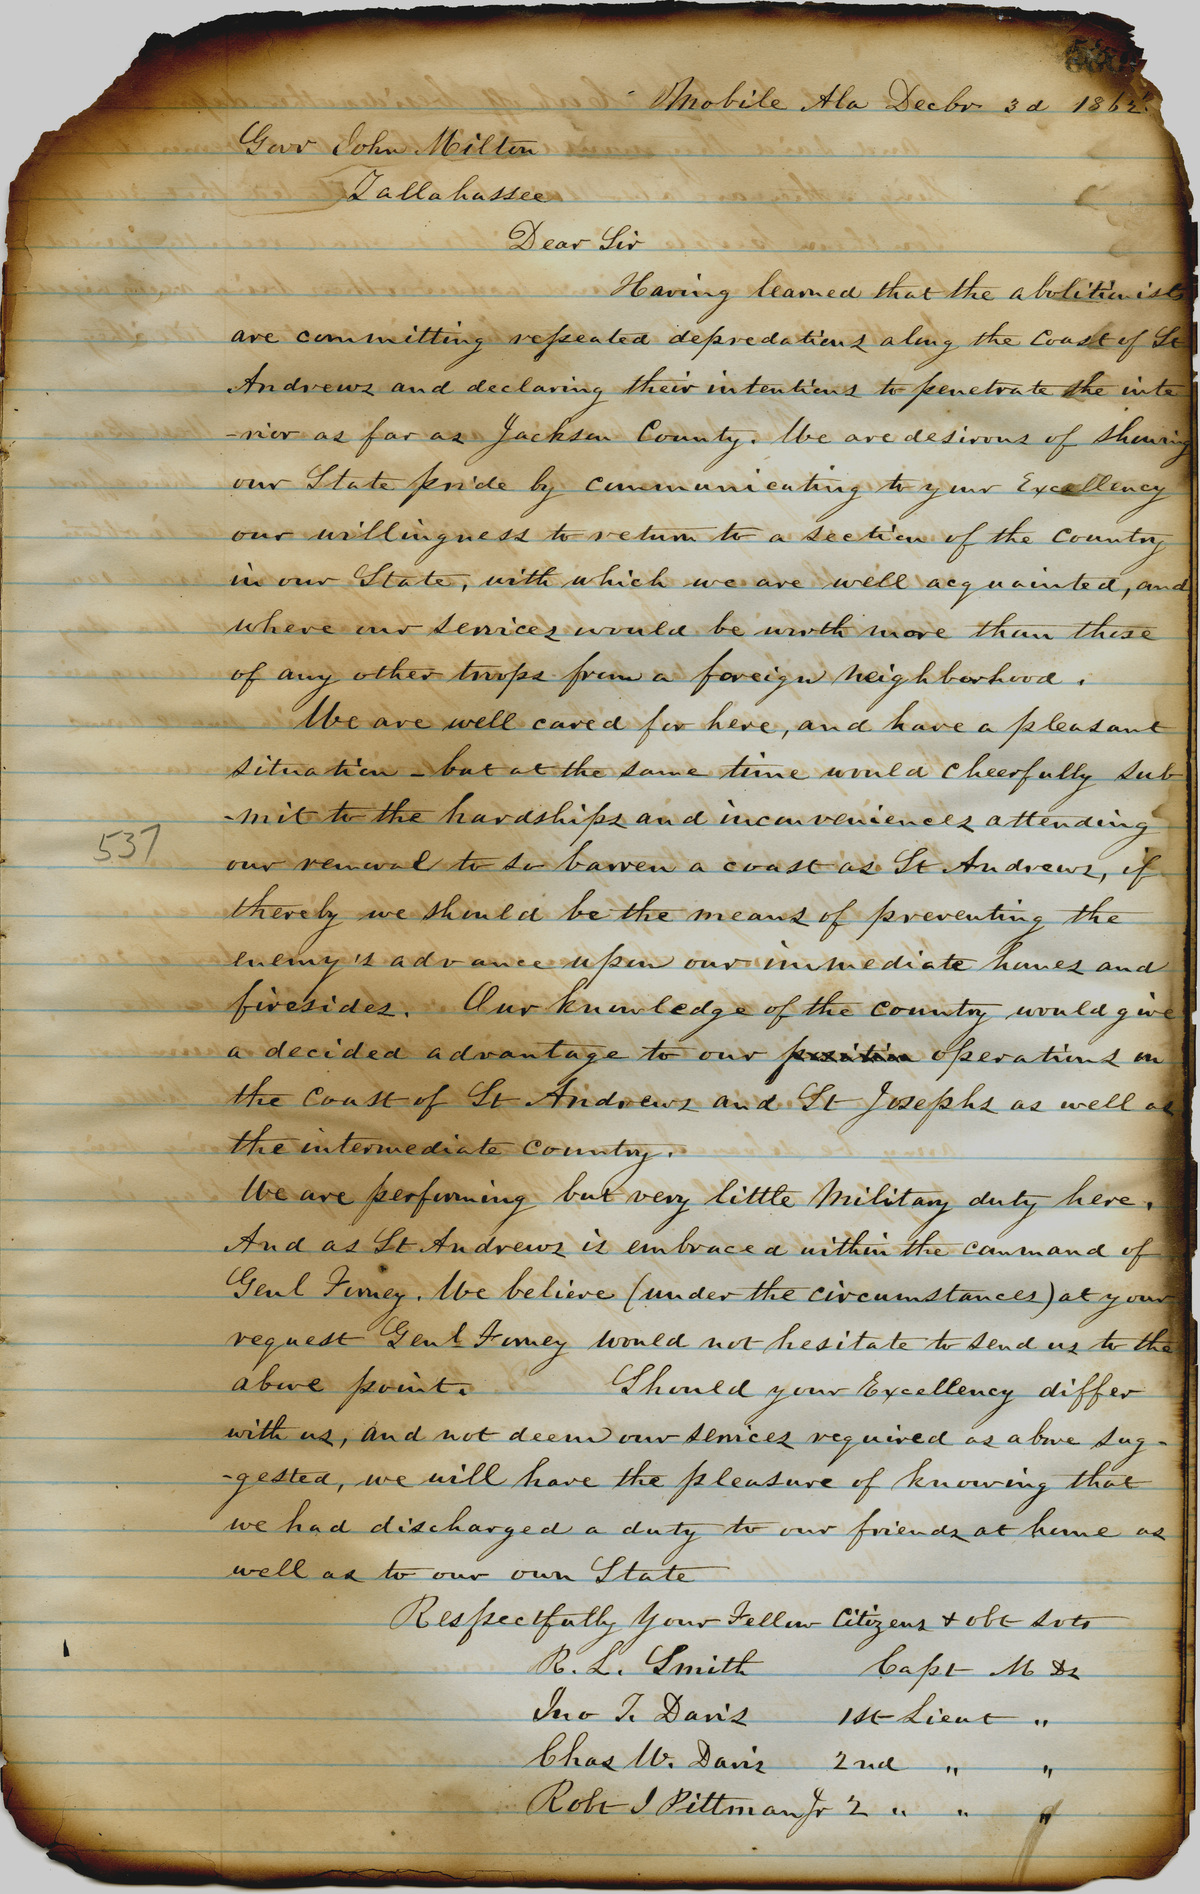 Mobile Ala Decbr 3d 1862
Govr John Milton
Tallahassee
Dear Sir
Having learned that the abolitionists
are committing repeated depredations along the Coast of St
Andrews and declaring their intentions to penetrate the inte
-rior as far as Jackson County. We are desirous of showing
our State pride by communicating to your Excellency
our willingness to return to a section of the Country
in our State, with which we are well acquainted, and
where our services would be worth more than those
of any other troops from a foreign neighborhood.
We are well cared for here, and have a pleasant
situation - but at the same time would cheerfully sub
-mit to the hardships and inconveniences attending
537
our removal to so barren a coast as St Andrews, if
thereby we should be the means of preventing the
enemy's advance upon our immediate homes and
firesides. Our knowledge of the country would give
a decided advantage to our position operations on
the Coast of St Andrews and St Josephs as well as
the intermediate country.
We are performing but very little Military duty here.
And as St Andrews is embraced within the command of
Genl Forney. We believe (under the circumstances) at your
request Genl Forney would not hesitate to send us to the
above point. Should your Excellency differ
with us, and not deem our services required as above sug-
-gested, we will have the pleasure of knowing that
we had discharged a duty to our friends at home as
well as to our own State
Respectfully Your Fellow Citizens & obt svts
R. L. Smith Capt M Ds
Jno T. Davis 1st Lieut "
Chas W. Davis 2nd " "
Robt J Pittman Jr 2 " " "